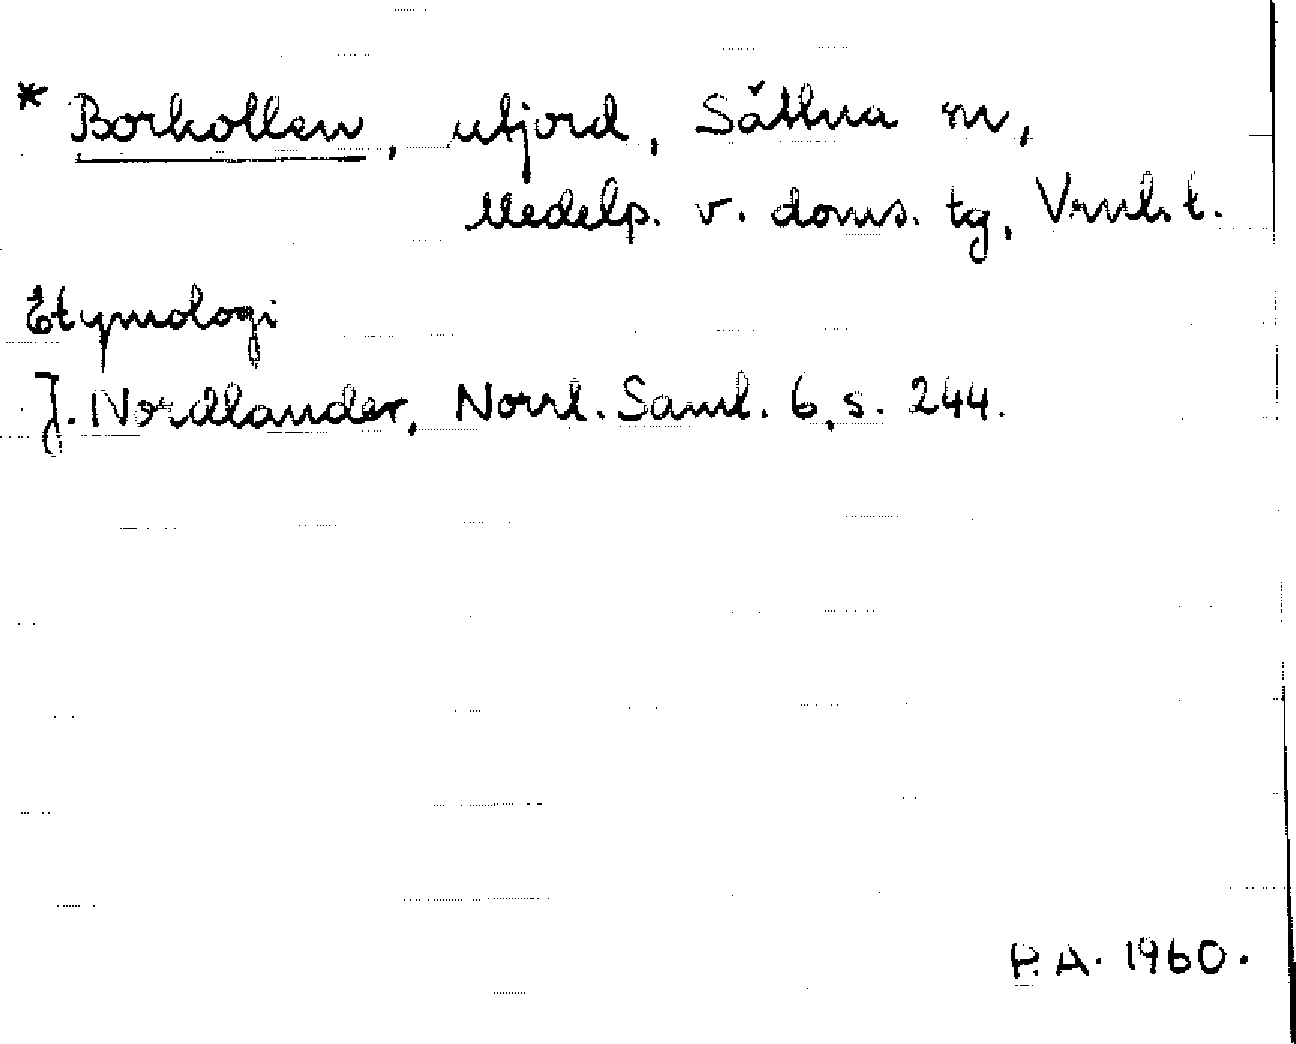 * Borkollen, utjord, Sättna sn,
Medelp. v. doms. tg, Vrnl. l.
Etymologi
J. Nordlander, Norrl. Saml. 6, s. 244.
P. A. 1960.